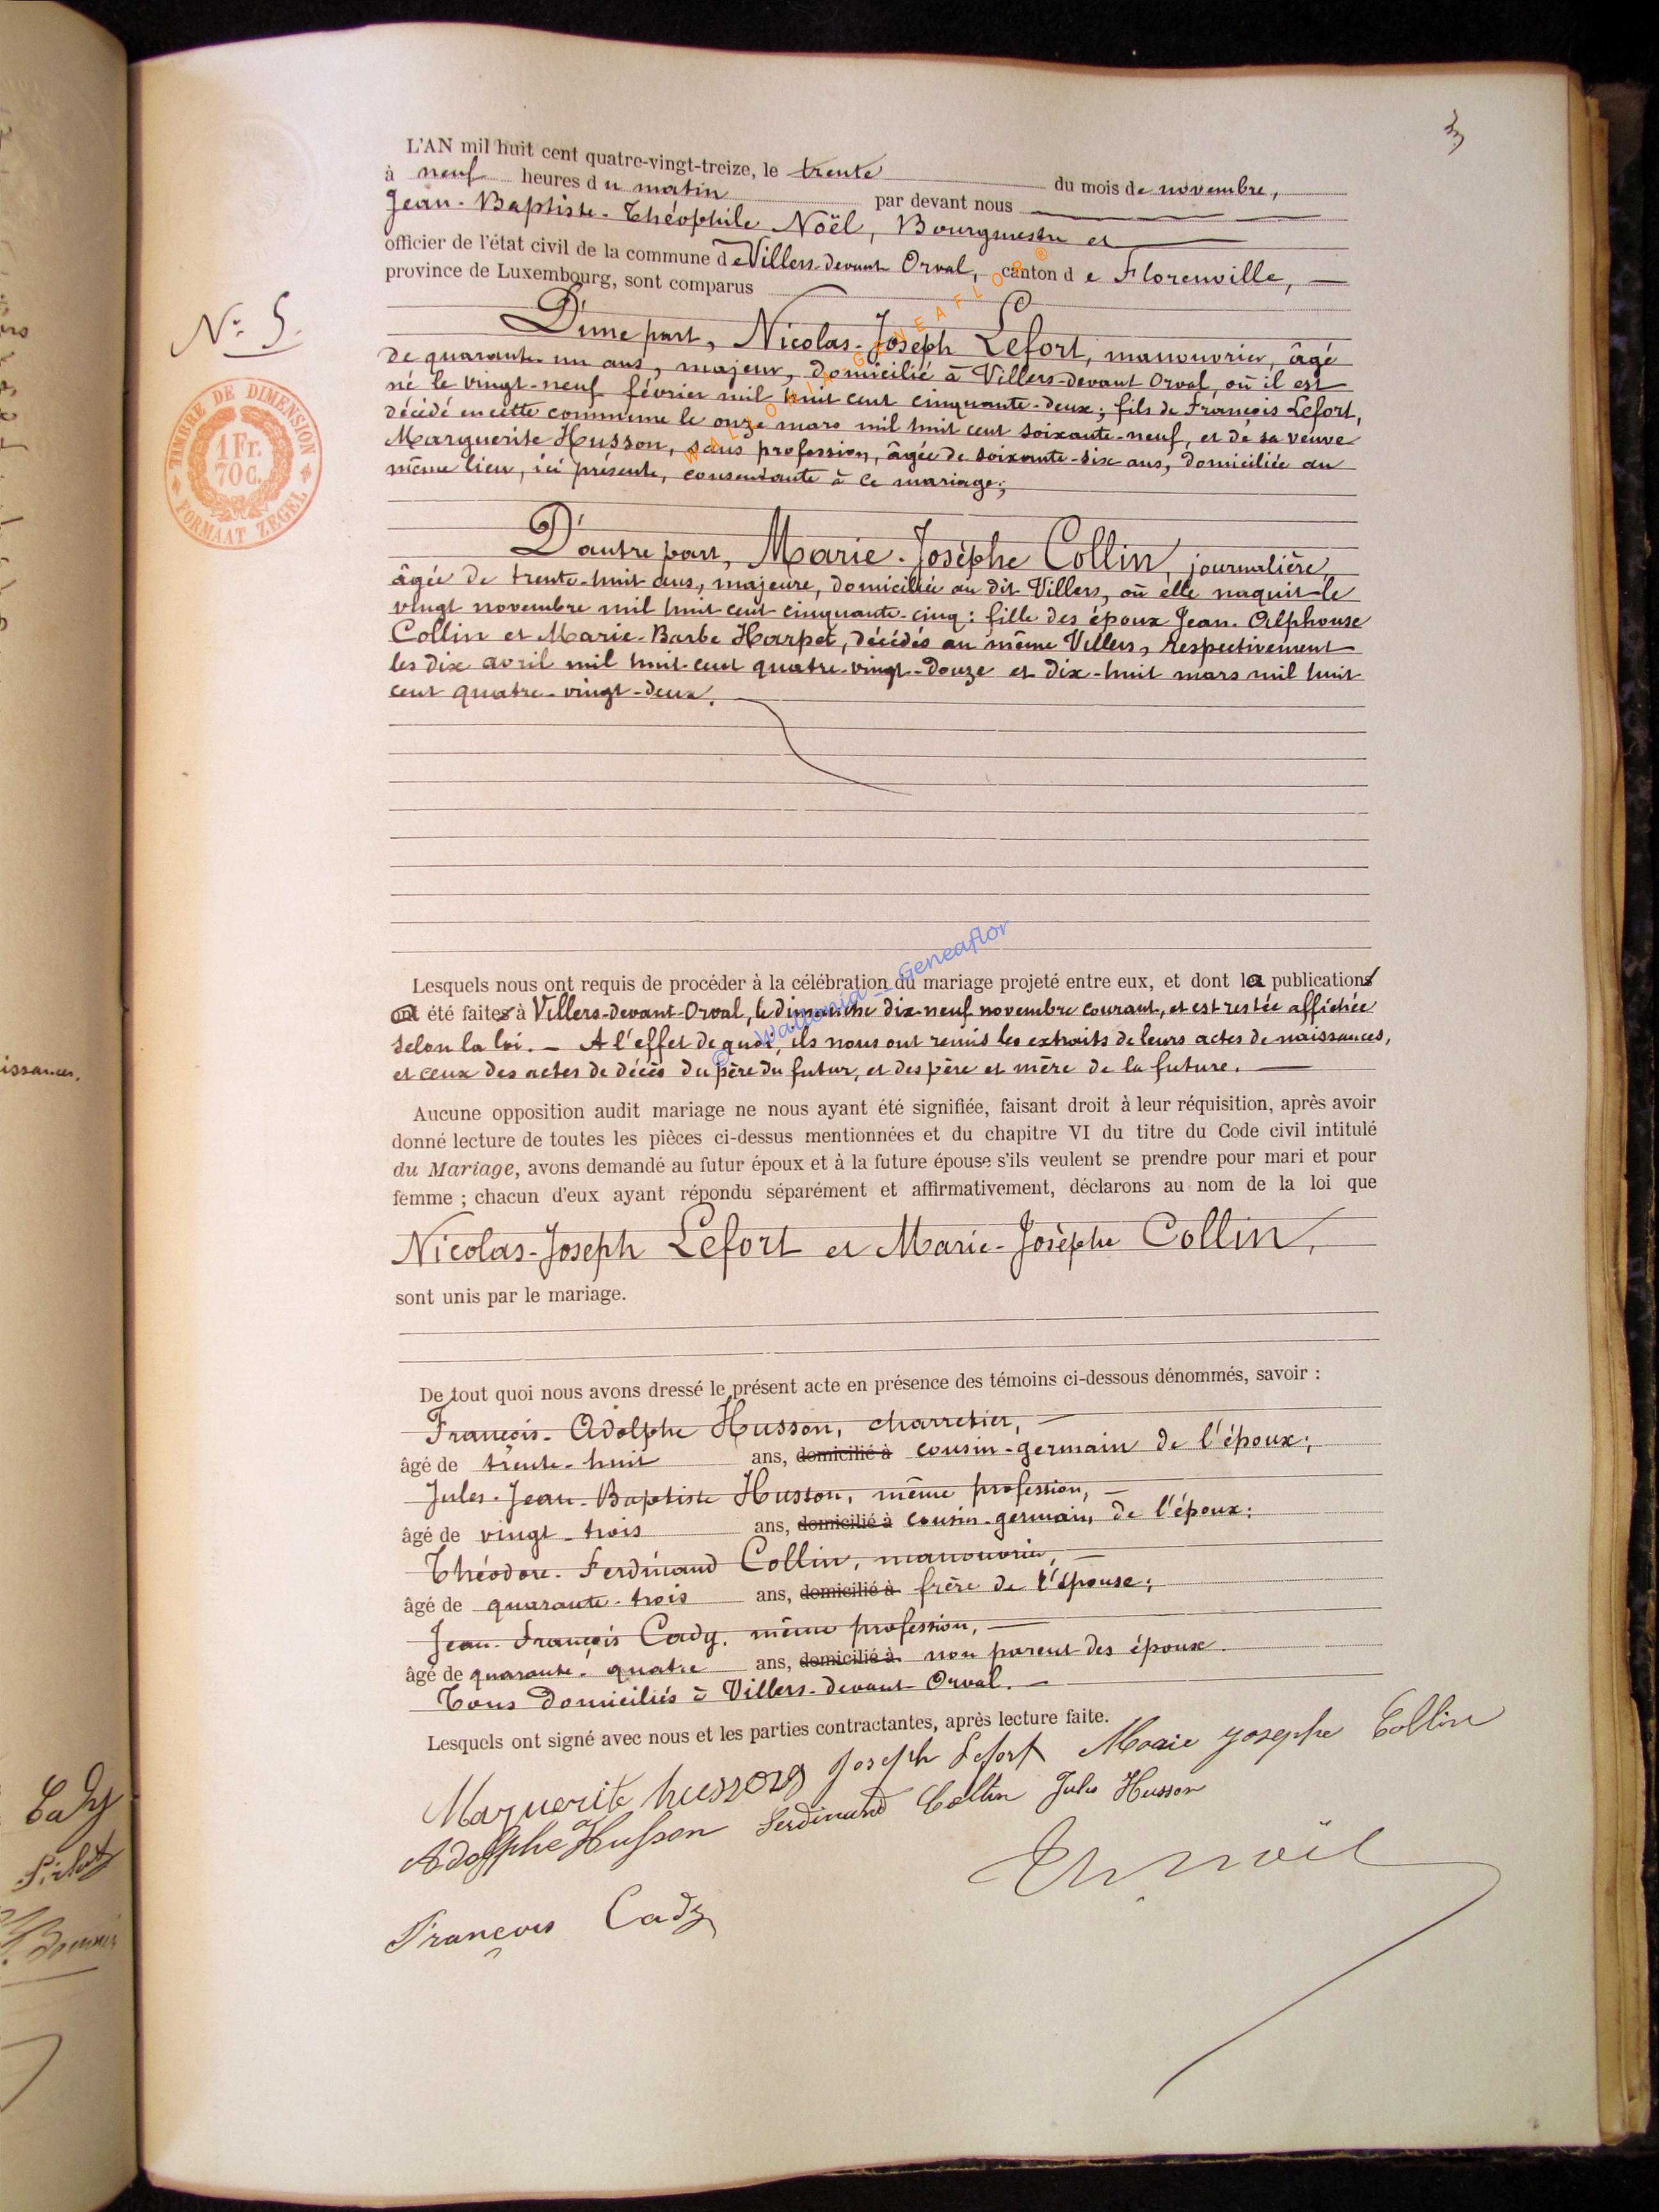 3
L'AN mil huit cent quatre-vingt-treize, le trente du mois de novembre,
à neuf heures du matin par devant nous
Jean-Baptiste-Théophile Noël, Bourgmestre et
officier de l'état civil de la commune de Villers-devant Orval, canton de Florenville,
province de Luxembourg, sont comparus
N° 5.
TIMBRE DE DIMENSION
1 Fr.
70 C.
FORMAAT ZEGEL
D'une part, Nicolas-Joseph Lefort, manouvrier, âgé
de quarante-un ans, majeur, domicilié à Villers-devant Orval, où il est
né le vingt-neuf février mil huit cent cinquante-deux; fils de François Lefort,
décédé en cette commune le onze mars mil huit cent soixante-neuf, et de sa veuve
Marguerite Husson, sans profession, âgée de soixante-six ans, domiciliée au
même lieu, ici présente, consentante à ce mariage;
D'autre part, Marie-Josèphe Collin, journalière,
âgée de trente-huit ans, majeure, domiciliée au dit Villers, où elle naquit le
vingt novembre mil huit cent cinquante-cinq: fille des époux Jean-Alphonse
Collin et Marie-Barbe Harpet, décédés au même Villers, respectivement
les dix avril mil huit cent quatre-vingt-douze et dix-huit mars mil huit
cent quatre-vingt-deux.
Lesquels nous ont requis de procéder à la célébration du mariage projeté entre eux, et dont la publications
ont été faites à Villers-devant-Orval, le dimanche dix-neuf novembre courant, et est restée affichée
selon la loi. — A l'effet de quoi, ils nous ont remis les extraits de leurs actes de naissances,
et ceux des actes de décès du père du futur, et des père et mère de la future.
Aucune opposition audit mariage ne nous ayant été signifiée, faisant droit à leur réquisition, après avoir
donné lecture de toutes les pièces ci-dessus mentionnées et du chapitre VI du titre du Code civil intitulé
du Mariage, avons demandé au futur époux et à la future épouse s'ils veulent se prendre pour mari et pour
femme ; chacun d'eux ayant répondu séparément et affirmativement, déclarons au nom de la loi que
Nicolas-Joseph Lefort et Marie-Josèphe Collin,
sont unis par le mariage.
De tout quoi nous avons dressé le présent acte en présence des témoins ci-dessous dénommés, savoir :
François-Adolphe Husson, charretier,
âgé de trente-huit ans, domicilié à cousin-germain de l'époux;
Jules-Jean-Baptiste Husson, même profession,
âgé de vingt-trois ans, domicilié à cousin-germain, de l'époux;
Théodore-Ferdinand Collin, manouvrier,
âgé de quarante-trois ans, domicilié à frère de l'épouse;
Jean-François Cady, même profession,
âgé de quarante-quatre ans, domicilié à non parent des époux.
Tous domiciliés à Villers-devant-Orval.
Lesquels ont signé avec nous et les parties contractantes, après lecture faite.
Marguerite husson Joseph Lefort Marie josephe Collin
Adolphe Husson Ferdinand Collin Jules Husson
Th Noël
François Cady
issances,
Cady
WALLONIA GENEAFLOR ®
© Wallonia - Geneaflor